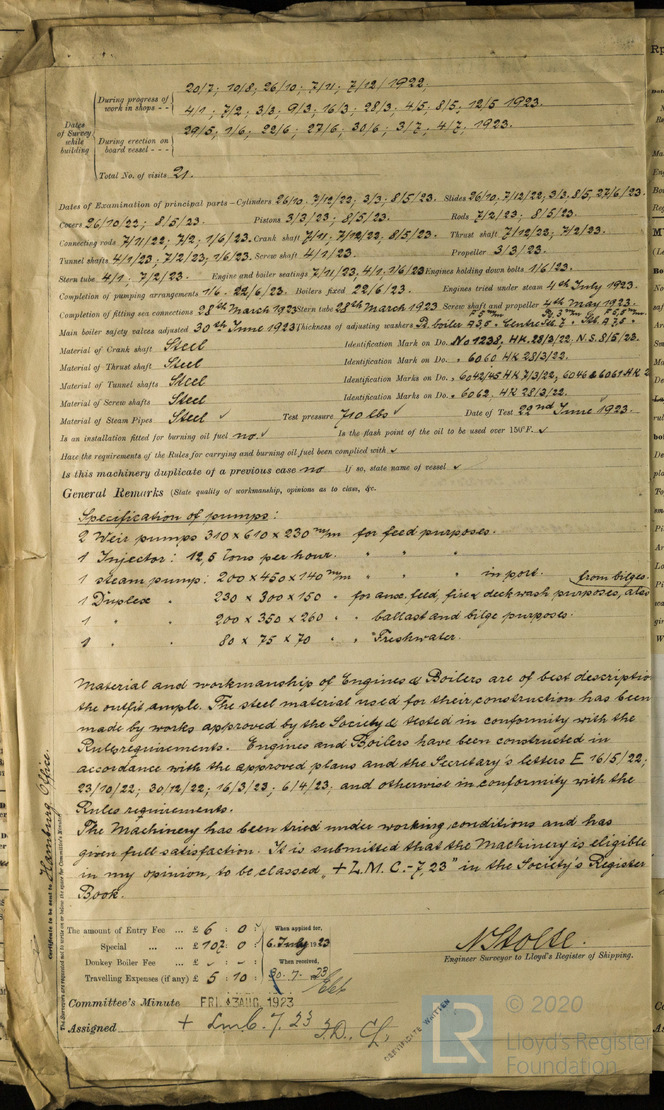 Dates of Survey while building
During progress of work in shops - -
20/7; 10/8; 26/10; 7/11; 7/12/1922
4/1; 7/2; 3/3; 9/3; 16/3; 28/3; 4/5; 8/5; 12/5 1923.
During erection on board vessel - - -
29/5, 1/6; 22/6; 27/6; 30/6; 3/7; 4/7, 1923.
Total No. of visits 21.
Dates of Examination of principal parts—Cylinders 26/10, 7/12/22; 3/3; 8/5/23. Slides 26/10, 7/12/22, 3/3, 8/5, 27/6/23.
Covers 26/10/22; 8/5/23. Pistons 3/3/23; 8/5/23. Rods 7/2/23; 8/5/23.
Connecting rods 7/11/22; 7/2; 1/6/23. Crank shaft 7/11; 7/12/22, 8/5/23. Thrust shaft 7/12/22; 7/2/23.
Tunnel shafts 4/1/23; 7/2/23; 1/6/23. Screw shaft 4/1/23. Propeller 3/3/23.
Stern tube 4/1; 7/2/23. Engine and boiler seatings 7/11/23, 4/1, 1/6/23 Engines holding down bolts 1/6/23.
Completion of pumping arrangements 1/6. 22/6/23. Boilers fixed 22/6/23. Engines tried under steam 4th July 1923.
Completion of fitting sea connections 28th March 1923 Stern tube 28th March 1923 Screw shaft and propeller 4th May 1923.
Main boiler safety valves adjusted 30th June 1923 Thickness of adjusting washers
Material of Crank shaft Steel Identification Mark on Do. No 1238, HK. 28/3/22, N.S. 8/5/23.
Material of Thrust shaft Steel Identification Mark on Do. " 6060 HK 28/3/22.
Material of Tunnel shafts Steel Identification Marks on Do. " 6042/45 HK 7/3/22; 6046 & 6061 HK 2
Material of Screw shafts Steel Identification Marks on Do. " 6062, HK 28/3/22.
Material of Steam Pipes Steel ✓ Test pressure 710 lbs ✓ Date of Test 22nd June 1923.
Is an installation fitted for burning oil fuel no. ✓ Is the flash point of the oil to be used over 150°F. ✓
Have the requirements of the Rules for carrying and burning oil fuel been complied with ✓
Is this machinery duplicate of a previous case no If so, state name of vessel ✓
General Remarks (State quality of workmanship, opinions as to class, &c.
Specification of pumps:
2 Weir pumps 310 x 610 x 230 m/m for feed purposes.
1 Injector: 12,5 tons per hour. " " "
1 steam pump: 200 x 450 x 140 m/m " " in port. from bilges.
1 Duplex " 230 x 300 x 150 " for aux. feed, fire & deckwash purposes, also
1 " " 200 x 350 x 260 " " ballast and bilge purposes.
1 " " 80 x 75 x 70 " " Freshwater.
Material and workmanship of Engines & Boilers are of best descriptio
the outfit ample. The steel material used for their construction has been
made by works approved by the Society & tested in conformity with the
Rule requirements. Engines and Boilers have been constructed in
accordance with the approved plans and the Secretary's letters E 16/5/22;
23/10/22; 30/12/22; 16/3/23; 6/4/23; and otherwise in conformity with the
Rules requirements.
The Machinery has been tried under working conditions and has
given full satisfaction. It is submitted that the Machinery is eligible
in my opinion, to be classed „+ L.M.C. - 7,23" in the Society's Register
Book.
Certificate to be sent to Hamburg Office.
The Surveyors are requested not to write on or below the space for Committee's Minute.
The amount of Entry Fee ... £ 6 : 0 : When applied for,
Special ... ... £ 102 : 0 : 6. July 1923
Donkey Boiler Fee ... £ - : - : When received,
Travelling Expenses (if any) £ 5 : 10 : 30. 7. 23
N Stolse.
Engineer Surveyor to Lloyd's Register of Shipping.
Committee's Minute FRI. 3 AUG. 1923
Assigned + LMC. 7. 23 F.D., CL,
CERTIFICATE WRITTEN
LR
© 2020
Lloyd's Register
Foundation